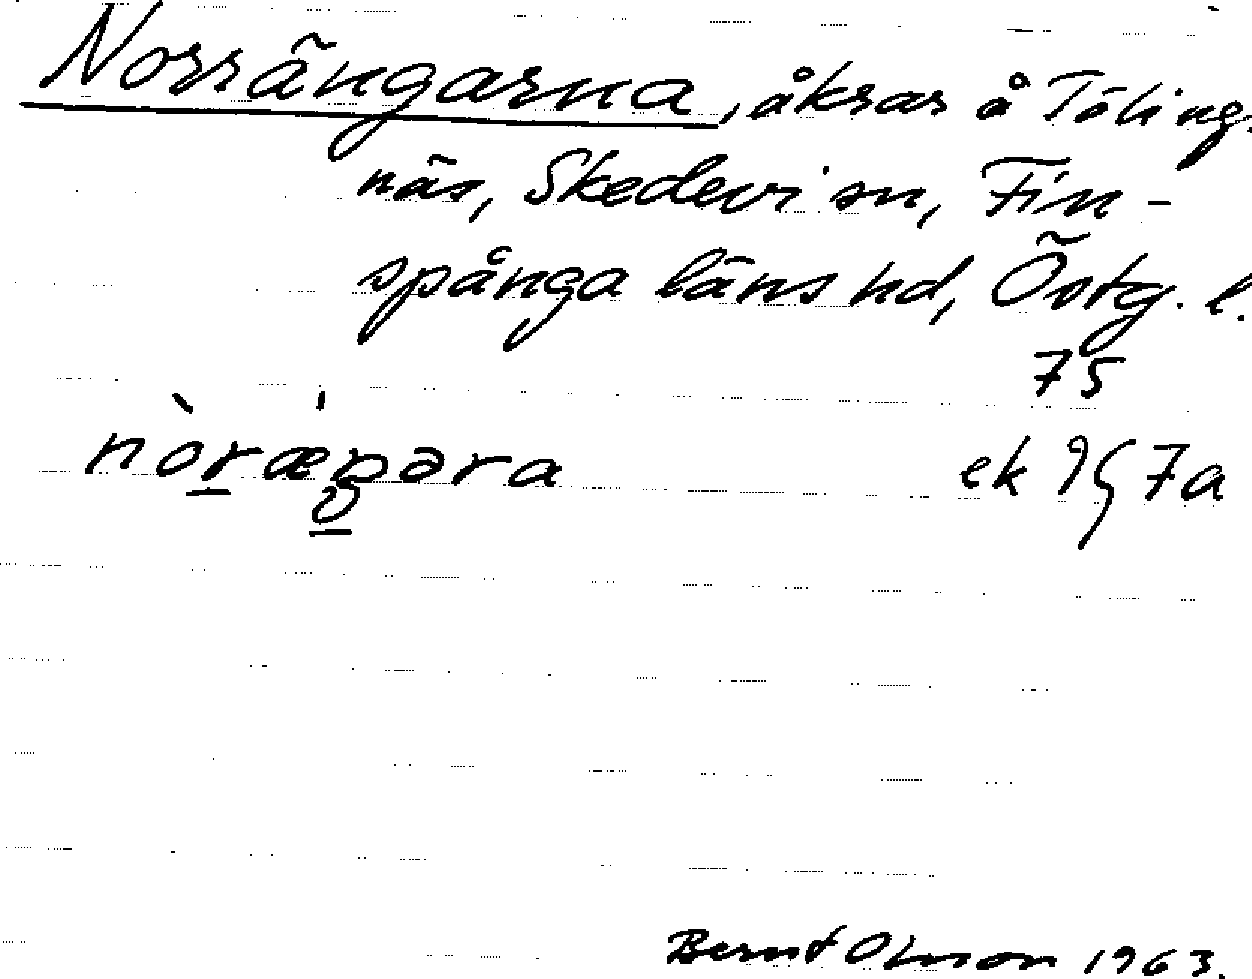 Norrängarna, åkrar å Töling-
näs, Skedevi sn, Fin-
spånga läns hd, Östg. l.
75
nòræŋara ek 9G7a
Bernt Olsson 1963.